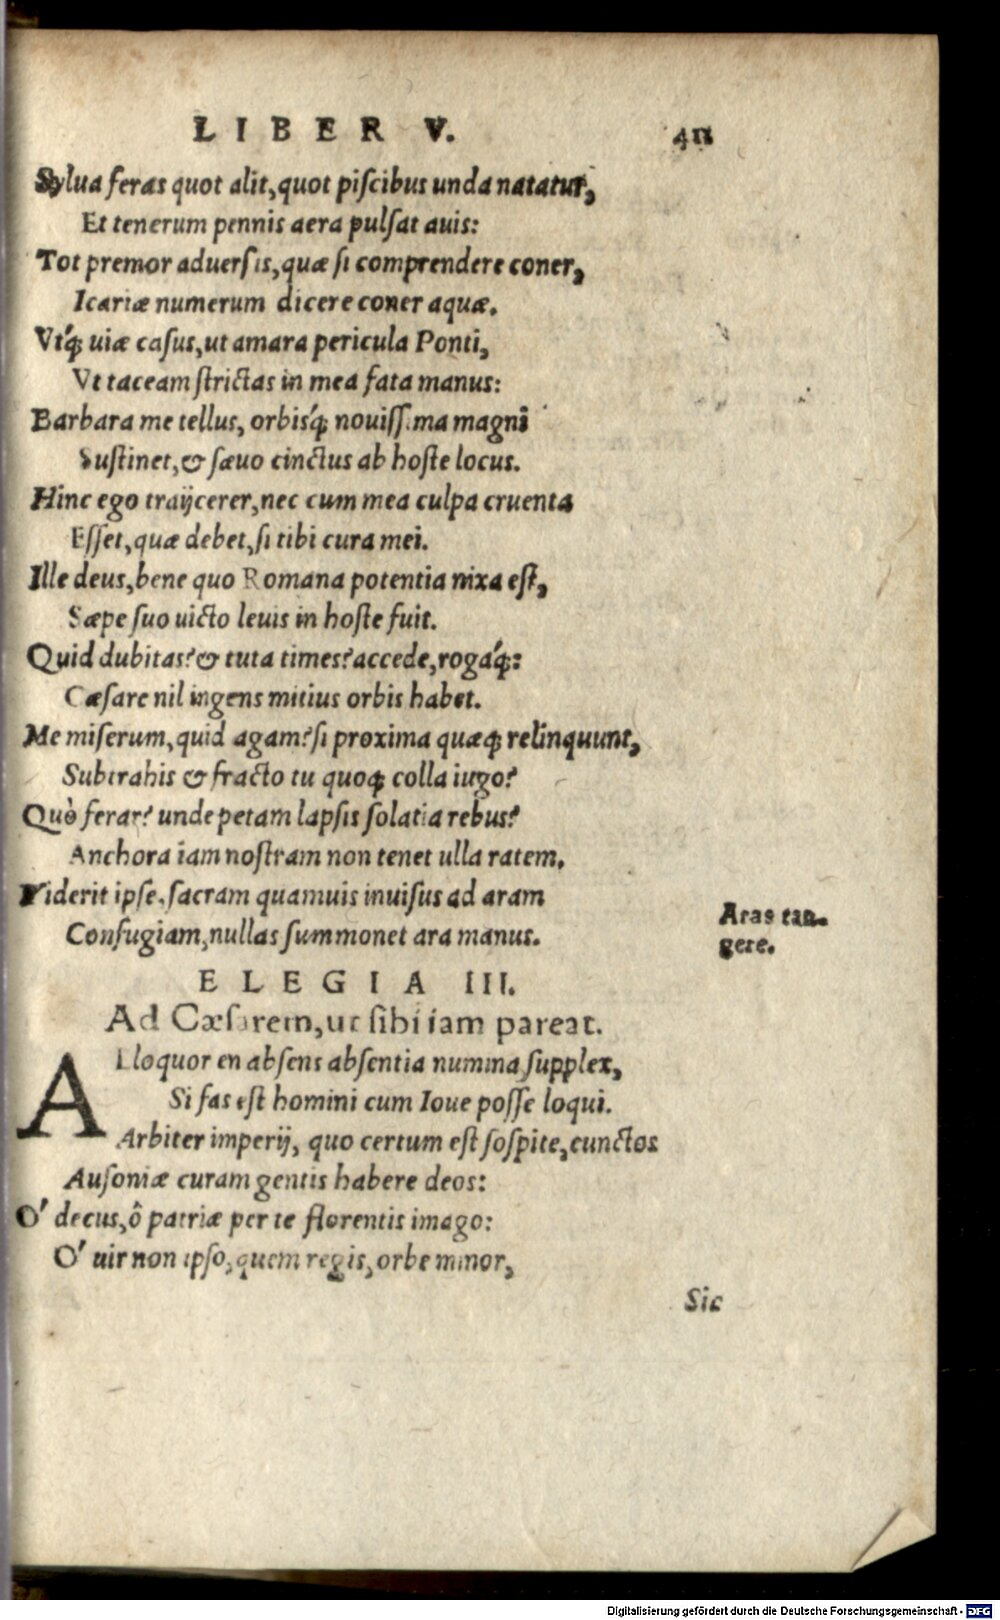 LIBER V. 411
Sylua feras quot alit, quot piſcibus unda natatur,
Et tenerum pennis aera pulſat auis:
Tot premor aduerſis, quæ ſi comprendere coner,
Icariæ numerum dicere coner aquæ.
Vtq́; uiæ caſus, ut amara pericula Ponti,
Vt taceam ſtrictas in mea fata manus:
Barbara me tellus, orbisq́; nouiſſima magni
Suſtinet, & ſæuo cinctus ab hoſte locus.
Hinc ego traijcerer, nec cum mea culpa cruenta
Eſſet, quæ debet, ſi tibi cura mei.
Ille deus, bene quo Romana potentia nixa eſt,
Sæpe ſuo uicto leuis in hoſte fuit.
Quid dubitas? & tuta times? accede, rogaq́;:
Cæſare nil ingens mitius orbis habet.
Me miſerum, quid agam? ſi proxima quæq; relinquunt,
Subtrahis & fracto tu quoq; colla iugo?
Quò ferar? unde petam lapſis ſolatia rebus?
Anchora iam noſtram non tenet ulla ratem.
Viderit ipſe, ſacram quamuis inuiſus ad aram
Confugiam, nullas ſummonet ara manus.
Aras tan-
gere.
ELEGIA III.
Ad Cæſarem, ut ſibi iam pareat.
ALloquor en abſens abſentia numina ſupplex,
Si fas eſt homini cum Ioue poſſe loqui.
Arbiter imperij, quo certum eſt ſoſpite, cunctos
Auſoniæ curam gentis habere deos:
O' decus, ô patriæ per te florentis imago:
O' uir non ipſo, quem regis, orbe minor,
Sic
Digitalisierung gefördert durch die Deutsche Forschungsgemeinschaft - DFG